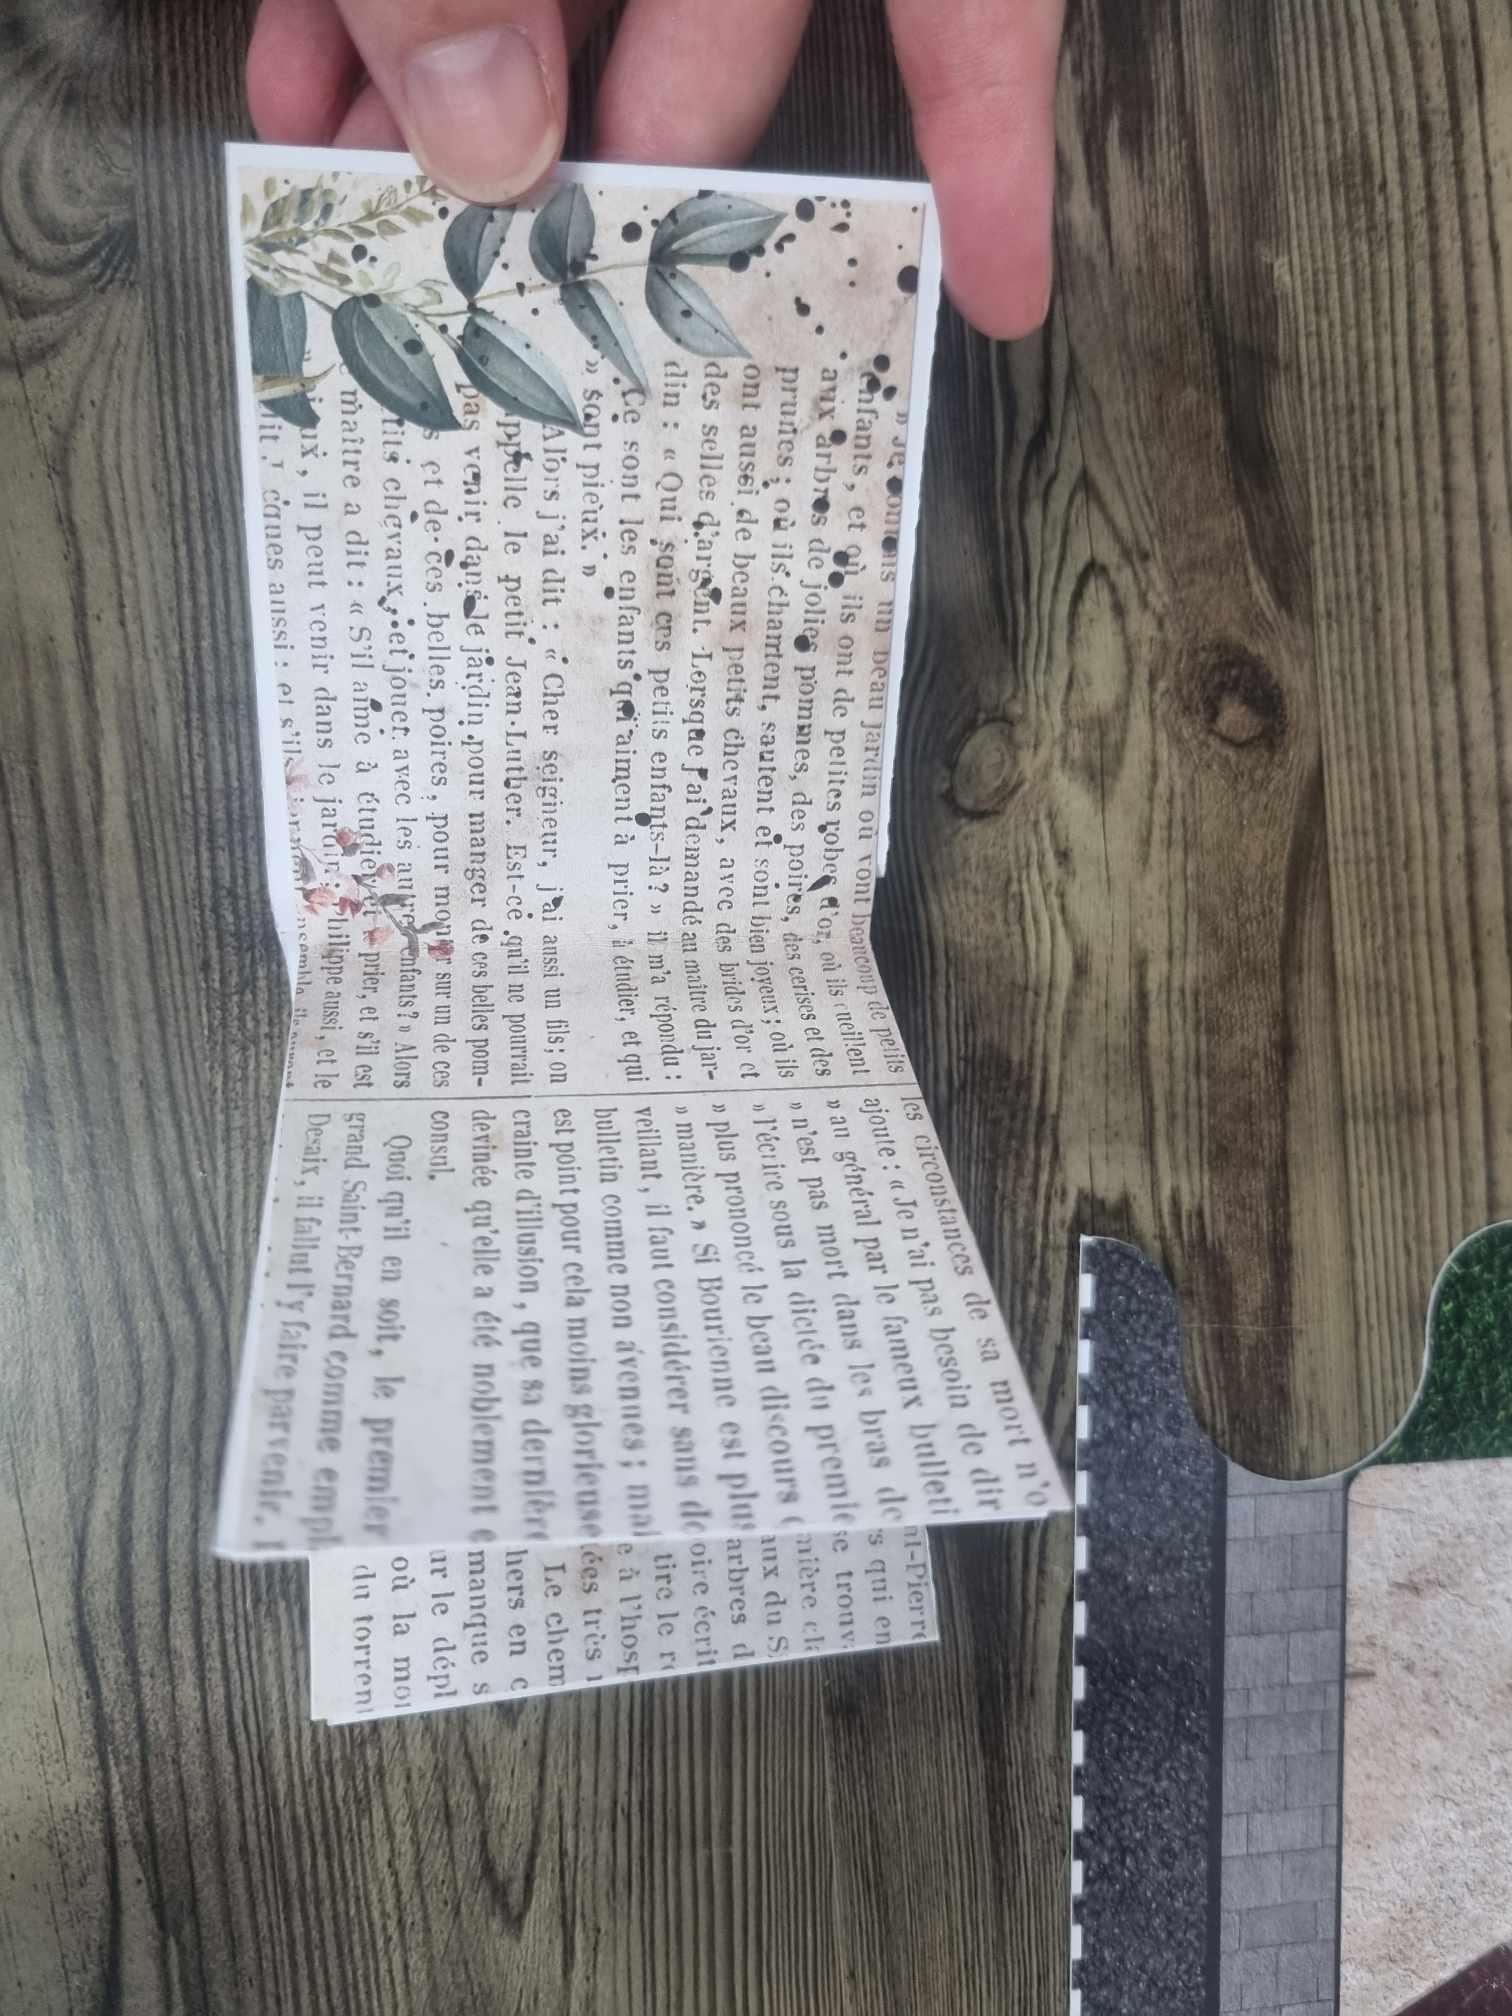 » Je connais un beau jardin où vont beaucoup de petits
enfants, et où ils ont de petites robes d'or, où ils cueillent
aux arbres de jolies pommes, des poires, des cerises et des
prunes; où ils chantent, sautent et sont bien joyeux; où ils
ont aussi de beaux petits chevaux, avec des brides d'or et
des selles d'argent. Lorsque j'ai demandé au maître du jar-
din : « Qui sont ces petits enfants-là? » il m'a répondu :
Ce sont les enfants qui aiment à prier, à étudier, et qui
» sont pieux. »
Alors j'ai dit : « Cher seigneur, j'ai aussi un fils; on
appelle le petit Jean Luther. Est-ce qu'il ne pourrait
pas venir dans le jardin pour manger de ces belles pom-
et de ces belles poires, pour monter sur un de ces
chevaux, et jouer avec les autres enfants? » Alors
maître a dit : « S'il aime à étudier et prier, et s'il est
il peut venir dans le jardin; Philippe aussi, et le
aussi; et s'ils
les circonstances de sa mort n'o
ajoute : « Je n'ai pas besoin de dir
» au général par le fameux bulleti
» n'est pas mort dans les bras de
» l'écrire sous la dictée du premie
» plus prononcé le beau discours
» manière. » Si Bourienne est plus
veillant, il faut considérer sans do
bulletin comme non avenues; mai
est point pour cela moins glorieuse
crainte d'illusion, que sa dernière
devinée qu'elle a été noblement e
consul.
Quoi qu'il en soit, le premier
grand Saint-Bernard comme empl
Desaix, il fallut l'y faire parvenir.
nt-Pierre
s qui en
se trouv
nière cla
aux du S
arbres d
oire écrit
tire le r
e à l'hosp
ées très
Le chem
hers en c
manque s
ur le dépl
où la mor
du torrent